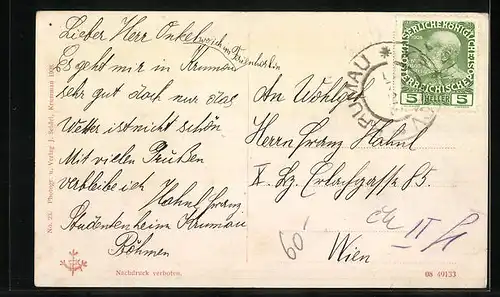 Lieber Herr Onkel
Es geht mir in Krummau
sehr gut doch nur das
Wetter ist nicht schön
Mit vielen Grüßen
verbleibe ich Hahnl Franz
Studentenheim Krumau
Böhmen
An Wohlgeb.
Herrn Franz Hahnl
X. Bz. Erlachgasse 85.
Wien
60
II
KRUMAU
KAISERLICHE KÖNIGLICHE
ÖSTERREICHISCHE
5 HELLER 5
No. 25. Photogr. u. Verlag J. Seidel, Krummau 1908.
Nachdruck verboten.
08 49133